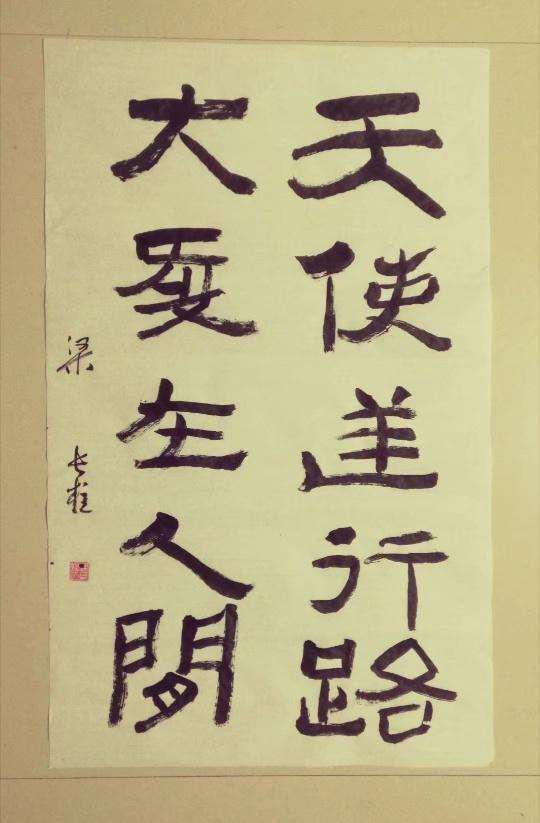 天使逆行路
大爱在人間
梁长柱